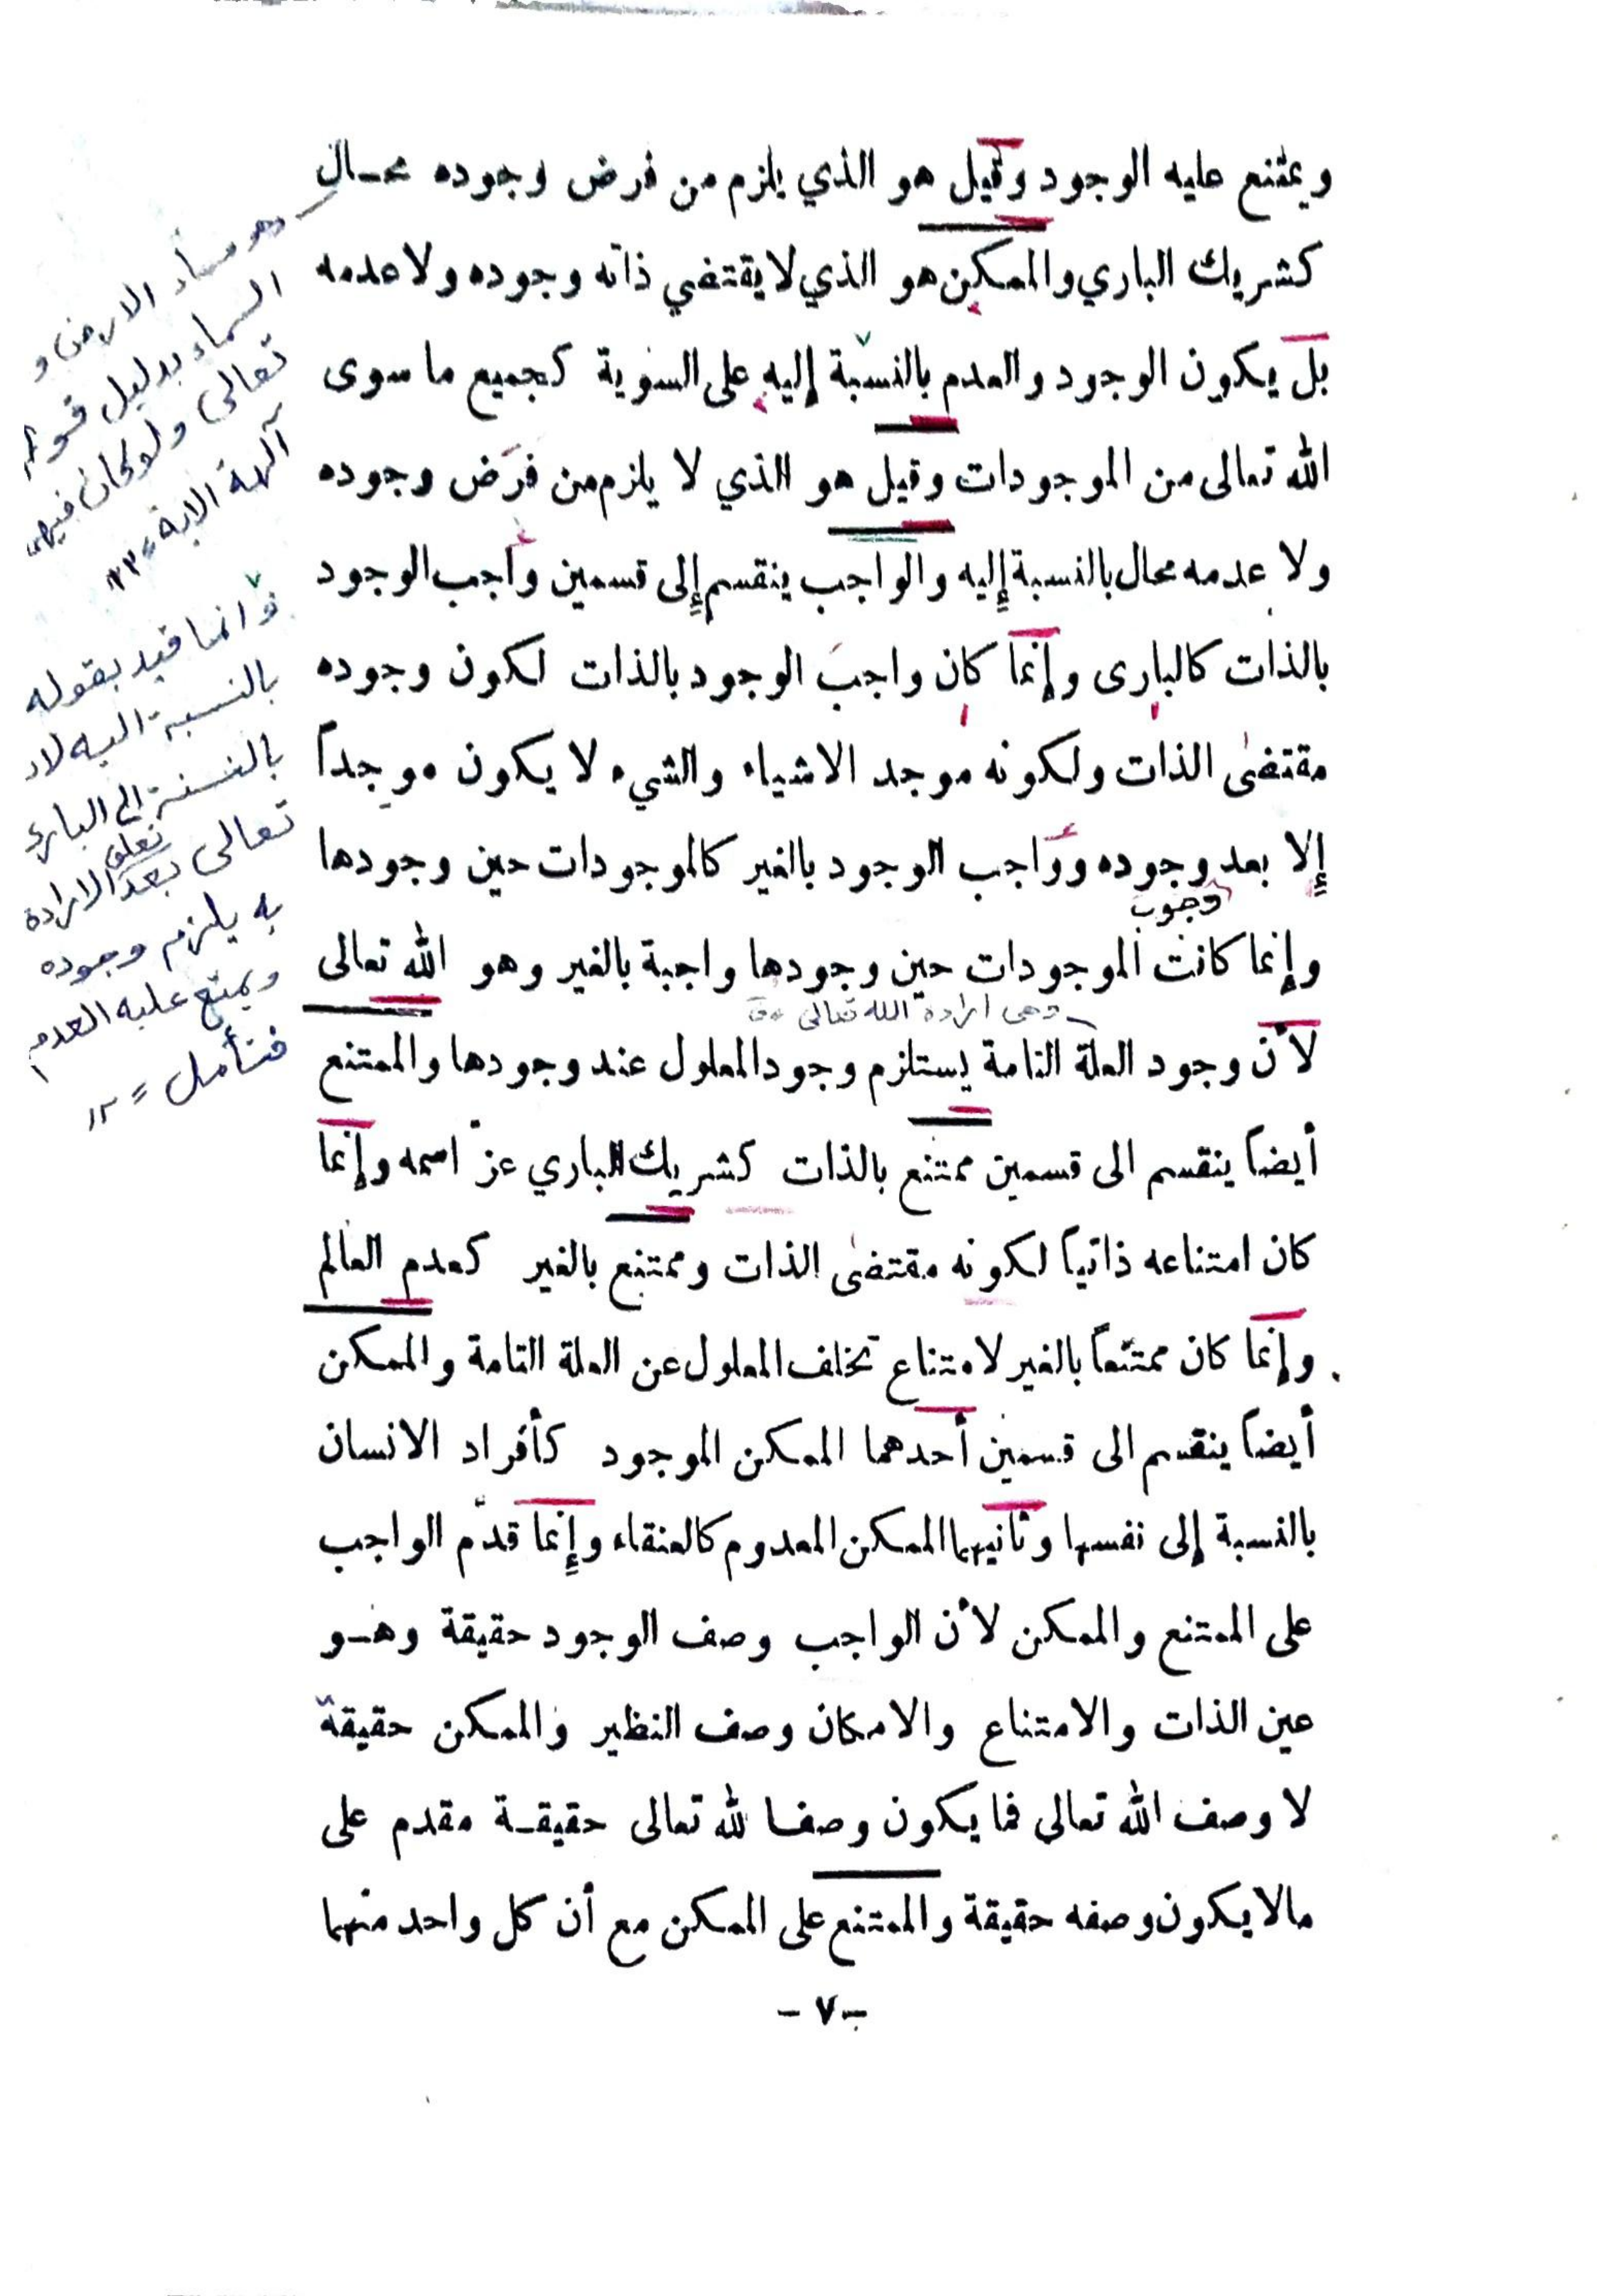 ويمتنع عليه الوجود وقيل هو الذي يلزم من فرض وجوده محـال
كشريك الباري والممكن هو الذي لا يقتضي ذاته وجوده ولا عدمه
بل يكون الوجود والعدم بالنسبة إليه على السوية كجميع ما سوى
الله تعالى من الموجودات وقيل هو الذي لا يلزم من فرض وجوده
ولا عدمه محال بالنسبة إليه والواجب ينقسم إلى قسمين واجب الوجود
بالذات كالبارى وإنما كان واجب الوجود بالذات لكون وجوده
مقتضى الذات ولكونه موجد الاشياء والشيء لا يكون موجداً
إلا بعد وجوده وواجب الوجود بالغير كالموجودات حين وجودها
وجوب
وإنما كانت الموجودات حين وجودها واجبة بالغير وهو الله تعالى
وهى ارادة الله تعالى
لأن وجود العلة التامة يستلزم وجود المعلول عند وجودها والممتنع
أيضاً ينقسم الى قسمين ممتنع بالذات كشريك الباري عزّ اسمه وإنما
كان امتناعه ذاتياً لكونه مقتضى الذات وممتنع بالغير كعدم العالم
وإنما كان ممتنعاً بالغير لامتناع تخلف المعلول عن العلة التامة والممكن
أيضاً ينقسم الى قسمين أحدهما الممكن الموجود كأفراد الانسان
بالنسبة إلى نفسها وثانيهما الممكن المعدوم كالعنقاء وإنما قدّم الواجب
على الممتنع والممكن لأن الواجب وصف الوجود حقيقة وهـو
عين الذات والامتناع والامكان وصف النظير والممكن حقيقة
لا وصف الله تعالى فما يكون وصفا لله تعالى حقيقـة مقدم على
مالا يكون وصفه حقيقة والممتنع على الممكن مع أن كل واحد منهما
- ٧ -
وهو فساد الارض و
السماء بدليل قوله
تعالى ولو كان فيهما
آلهة الاية ١٢
وانما قيد بقوله
بالنسبة اليه لان
بالنسبة الى البارئ
تعالى بعد تعلق الارادة
به يلزم وجوده
ويمتنع عليه العدم
فتأمل ١٢